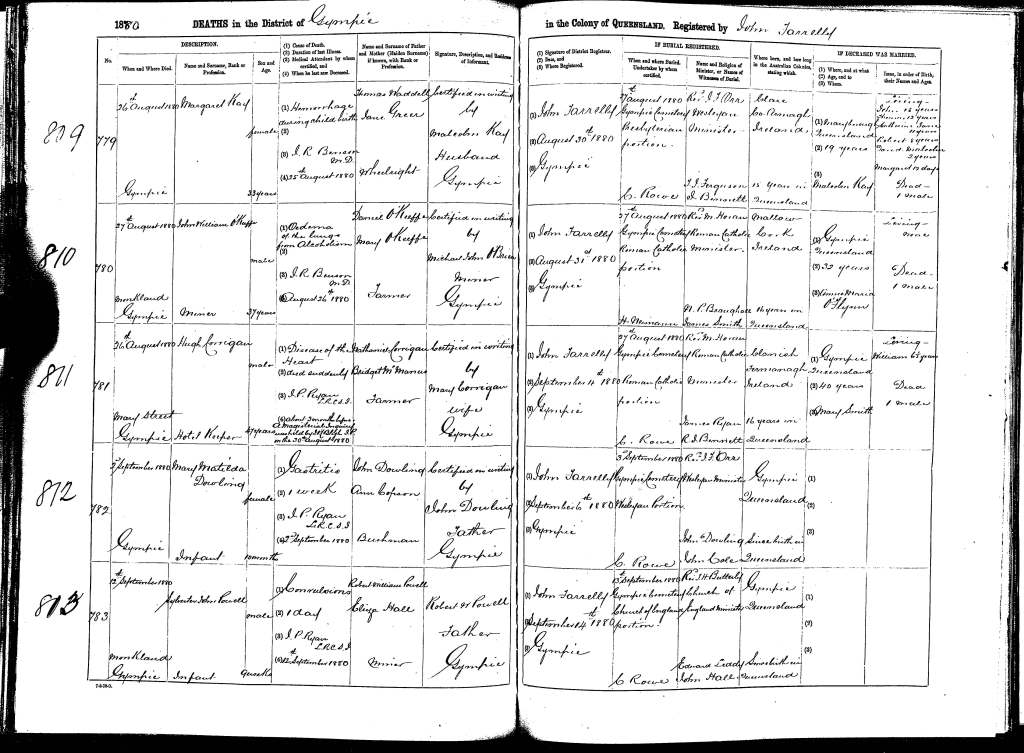 1880 DEATHS in the District of Gympie
in the Colony of QUEENSLAND. Registered by John Farrelly
DESCRIPTION.
No.
When and Where Died.
Name and Surname, Rank or Profession.
Sex and Age.
(1) Cause of Death.
(2) Duration of last Illness.
(3) Medical Attendant by whom certified, and
(4) When he last saw Deceased.
Name and Surname of Father and Mother (Maiden Surname) if known, with Rank or Profession.
Signature, Description, and Residence of Informant.
(1) Signature of District Registrar.
(2) Date, and
(3) Where Registered.
IF BURIAL REGISTERED.
When and where Buried. Undertaker by whom certified.
Name and Religion of Minister, or Names of Witnesses of Burial.
Where born, and how long in the Australian Colonies, stating which.
IF DECEASED WAS MARRIED.
(1) Where, and at what
(2) Age, and to
(3) Whom.
Issue, in order of Birth, their Names and Ages.
809
779
26th August 1880
Gympie
Margaret Kay
female
33 years
(1) Hemorrhage
during child birth
(2)
(3) J. R. Benson
M.D.
(4) 25th August 1880
Thomas Waddell
Jane Greer
Wheelwright
Certified in writing
by
Malcolm Kay
Husband
Gympie
(1) John Farrelly
(2) August 30th 1880
(3) Gympie
27th August 1880
Gympie Cemetery
Presbyterian
portion.
C. Rowe
Revd. J. F. Orr
Wesleyan
Minister
T. J. Ferguson
J. Bennett
Clare
Co. Armagh
Ireland
15 years in
Queensland
(1) Maryborough
Queensland
(2) 19 years
(3)
Malcolm Kay
Living-
Robert 8 years
David Malcolm
2 years
Margaret 10 days
Dead-
1 male
810
780
27th August 1880
Monkland
Gympie
John William O'Keeffe
Miner
male
37 years
(1) Oedema
of the lungs
from Alcoholism
(2)
(3) J. R. Benson
M.D.
(4) August 26th 1880
Daniel O'Keeffe
Mary O'Keeffe
Farmer
Certified in writing
by
Michael John O'Brien
Miner
Gympie
(1) John Farrelly
(2) August 31st 1880
(3) Gympie
27th August 1880
Gympie Cemetery
Roman Catholic
portion
H. Neimann
Revd. M. Horan
Roman Catholic
Minister.
James Smith
Mallow
Cork
Ireland
16 years in
Queensland
(1) Gympie
Queensland
(2) 32 years
(3)
O'Flynn
Living-
none
Dead-
1 male
811
781
26th August 1880
Mary Street
Gympie
Hugh Corrigan
Hotel Keeper
male
47 years
(1) Disease of the
Heart
(2) died suddenly
(3) J. P. Ryan
L.R.C.S.I.
(4) about 3 months before
A Magisterial Inquiry
on the 30th August 1880
Nathaniel Corrigan
Bridget McManus
Farmer
Certified in writing
by
Mary Corrigan
wife
Gympie
(1) John Farrelly
(2) September 4th 1880
(3) Gympie
27th August 1880
Gympie Cemetery
Roman Catholic
portion
C. Rowe
Revd. M. Horan
Roman Catholic
Minister
James Ryan
R. J. Bennett
Clonish
Fermanagh
Ireland
16 years in
Queensland
(1) Gympie
Queensland
(2) 40 years
(3) Mary Smith
Living-
William 6½ years
Dead
1 male
812
782
2nd September 1880
Gympie
Mary Matilda
Dowling
Infant
female
10 months
(1) Gastritis
(2) 1 week
(3) J. P. Ryan
L.R.C.S.I.
(4) 2nd September 1880
John Dowling
Ann Copson
Bushman
Certified in writing
by
John Dowling
Father
Gympie
(1) John Farrelly
(2) September 6th 1880
(3) Gympie
3rd September 1880
Gympie Cemetery
Wesleyan Portion
C. Rowe
Revd. J. F. Orr
Wesleyan Minister
John Dowling
John Cole
Gympie
Queensland
Since birth in
Queensland
(1)
(2)
(3)
813
783
12th September 1880
Monkland
Gympie
Sylvester John Powell
Infant
male
9 weeks
(1) Convulsions
(2) 1 day
(3) J. P. Ryan
L.R.C.S.I.
(4) 12th September 1880
Robert William Powell
Eliza Hall
Miner
Robert W Powell
Father
Gympie
(1) John Farrelly
(2) September 14th 1880
(3) Gympie
13th September 1880
Gympie Cemetery
Church of England
portion.
C Rowe
Revd. J H Butterly
Church of
England Minister
Edward Liddy
John Hall
Gympie
Queensland
Since birth in
Queensland
(1)
(2)
(3)